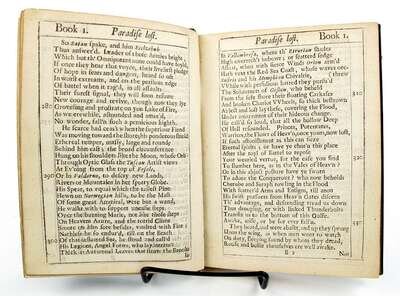 Book 1. Paradise lost.
So Satan spake, and him Beelzebub
Thus answer'd. Leader of those Armies bright,
Which but th' Omnipotent none could have foyld,
If once they hear that voyce, their liveliest pledge
Of hope in fears and dangers, heard so oft
In worst extreams, and on the perilous edge
Of battel when it rag'd, in all assaults
Their surest signal, they will soon resume
New courage and revive, though now they lye
280 Groveling and prostrate on yon Lake of Fire,
As we erewhile, astounded and amaz'd,
No wonder, fall'n such a pernicious highth.
He scarce had ceas't when the superiour Fiend
Was moving toward the shore; his ponderous shield
Ethereal temper, massy, large and round
Behind him cast; the broad circumference
Hung on his shoulders like the Moon, whose Orb
Through Optic Glass the Tuscan Artist views
At Ev'ning from the top of Fesole,
290 Or in Valdarno, to descry new Lands,
Rivers or Mountains in her spotty Globe.
His Spear, to equal which the tallest Pine
Hewn on Norwegian hills, to be the Mast
Of some great Ammiral, were but a wand,
He walkt with to support uneasie steps
Over the burning Marle, not like those steps
On Heavens Azure, and the torrid Clime
Smote on him sore besides, vaulted with Fire;
Nathless he so endur'd, till on the Beach
300 Of that inflamed Sea, he stood and call'd
His Legions, Angel Forms, who lay intrans't
Thick as Autumnal Leaves that strow the Brooks
In
Book 1. Paradise lost.
In Vallombrosa, where th' Etrurian shades
High overarch't imbowr; or scatterd sedge
Afloat, when with fierce Winds Orion arm'd
Hath vext the Red-Sea Coast, whose waves ore-
(threw
Busiris and his Memphian Chivalrie,
While with perfidious hatred they pursu'd
The Sojourners of Goshen, who beheld
From the safe shore their floating Carkases
310
And broken Chariot Wheels, so thick bestrown
Abject and lost lay these, covering the Flood,
Under amazement of their hideous change.
He call'd so loud, that all the hollow Deep
Of Hell resounded. Princes, Potentates,
Warriers, the Flowr of Heav'n, once yours, now lost,
If such astonishment as this can sieze
Eternal spirits; or have ye chos'n this place
After the toyl of Battel to repose
Your wearied vertue, for the ease you find
320
To slumber here, as in the Vales of Heav'n?
Or in this abject posture have ye sworn
To adore the Conquerour? who now beholds
Cherube and Seraph rowling in the Flood
With scatter'd Arms and Ensigns, till anon
His swift pursuers from Heav'n Gates discern
Th' advantage, and descending tread us down
Thus drooping, or with linked Thunderbolts
Transfix us to the bottom of this Gulfe.
Awake, arise, or be for ever fall'n.
330
They heard, and were abasht, and up they sprung
Upon the wing, as when men wont to watch
On duty, sleeping found by whom they dread,
Rouse and bestir themselves ere well awake.
Nor